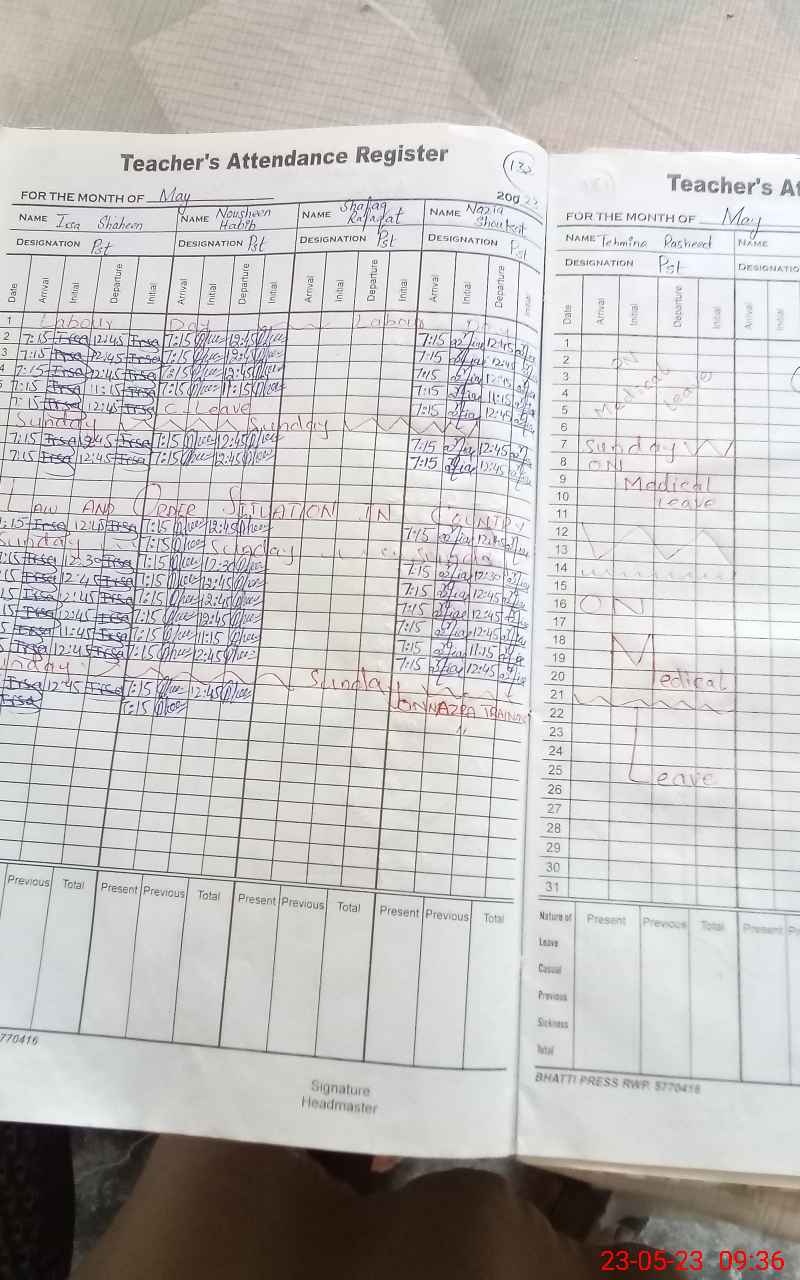 Teacher's Attendance Register
132
FOR THE MONTH OF May 2023
NAME Irsa Shaheen NAME Nousheen Habib NAME Shafaq Rafaqat NAME Nazia Shoukat
DESIGNATION Pst DESIGNATION Pst DESIGNATION Pst DESIGNATION Pst
Date Arrival Initial Departure Initial Arrival Initial Departure Initial Arrival Initial Departure Initial Arrival Initial Departure Initial
1 Labour Day Labour Day
2 7:15 Irsa 12:45 Irsa 7:15 12:45 7:15 12:45
3 7:15 Irsa 12:45 Irsa 7:15 12:45 7:15 12:45
4 7:15 Irsa 12:45 Irsa 7:15 12:45 7:15 12:45
5 7:15 Irsa 11:15 Irsa 7:15 11:15 7:15 11:15
7:15 Irsa 12:45 Irsa C-Leave 7:15 12:45
Sunday Sunday
7:15 Irsa 12:45 Irsa 7:15 12:45 7:15 12:45
7:15 Irsa 12:45 Irsa 7:15 12:45 7:15 12:45
LAW AND ORDER SITUATION IN COUNTRY
7:15 Irsa 12:45 Irsa 7:15 12:45 7:15 12:45
Sunday 7:15 Sunday Sunday
:15 Irsa 12:30 Irsa 7:15 12:30 7:15 12:30
:15 Irsa 12:45 Irsa 7:15 12:45 7:15 12:45
:15 Irsa 12:45 Irsa 7:15 12:45 7:15 12:45
:15 Irsa 12:45 Irsa 7:15 12:45 7:15 12:45
:15 Irsa 11:45 Irsa 7:15 11:15 7:15 11:15
Irsa 12:45 Irsa 7:15 12:45 7:15 12:45
unday Sunday
Irsa 12:45 Irsa 7:15 12:45 ON NAZRA TRAINING
Irsa 7:15 "
Previous Total Present Previous Total Present Previous Total Present Previous Total
770416
Signature
Headmaster
Teacher's At
FOR THE MONTH OF May
NAME Tehmina Rasheed NAME
DESIGNATION Pst DESIGNATIO
Date Arrival Initial Departure Initial Arrival Initial
1
2 ON
3 Medical
4 Leave
5
6
7 Sunday
8 ON
9 Medical
10 Leave
11
12
13
14
15
16 ON
17
18
19 Medical
20
21
22
23
24
25 Leave
26
27
28
29
30
31
Nature of Present Previous Total Present P
Leave
Casual
Previous
Sickness
Total
BHATTI PRESS RWP. 5770416
23-05-23 09:36